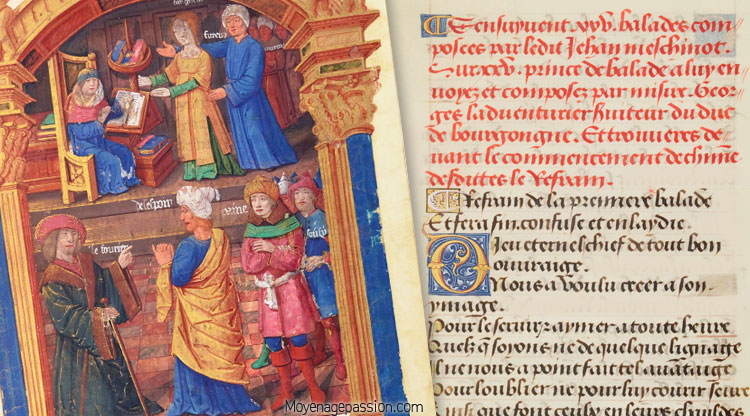 desespoir
Sensuyuent .xxv. balades com
posees par ledit Jehan meschinot.
Sur .xxv. prince de balade a luy en
voyez et composez par missire. Geor
ges laduenturier seruiteur du duc
de bourgongne. Et trouuerez de
uant le commencement de chūne
desdittes le Refrain.
Refrain de la premiere balade
Et sera fin, confuse et enlaydie.
Dieu eternel chief de tout bon
ouuraige.
Nous a voulu creer a son
ymage.
Pour le seruir aymer a toute heure
Quelz q̄ soyons ne de quelque lignage
Il ne nous a point fait tel auātaige
Pour loublier ne pour luy courir seure
Moyenagepassion.com